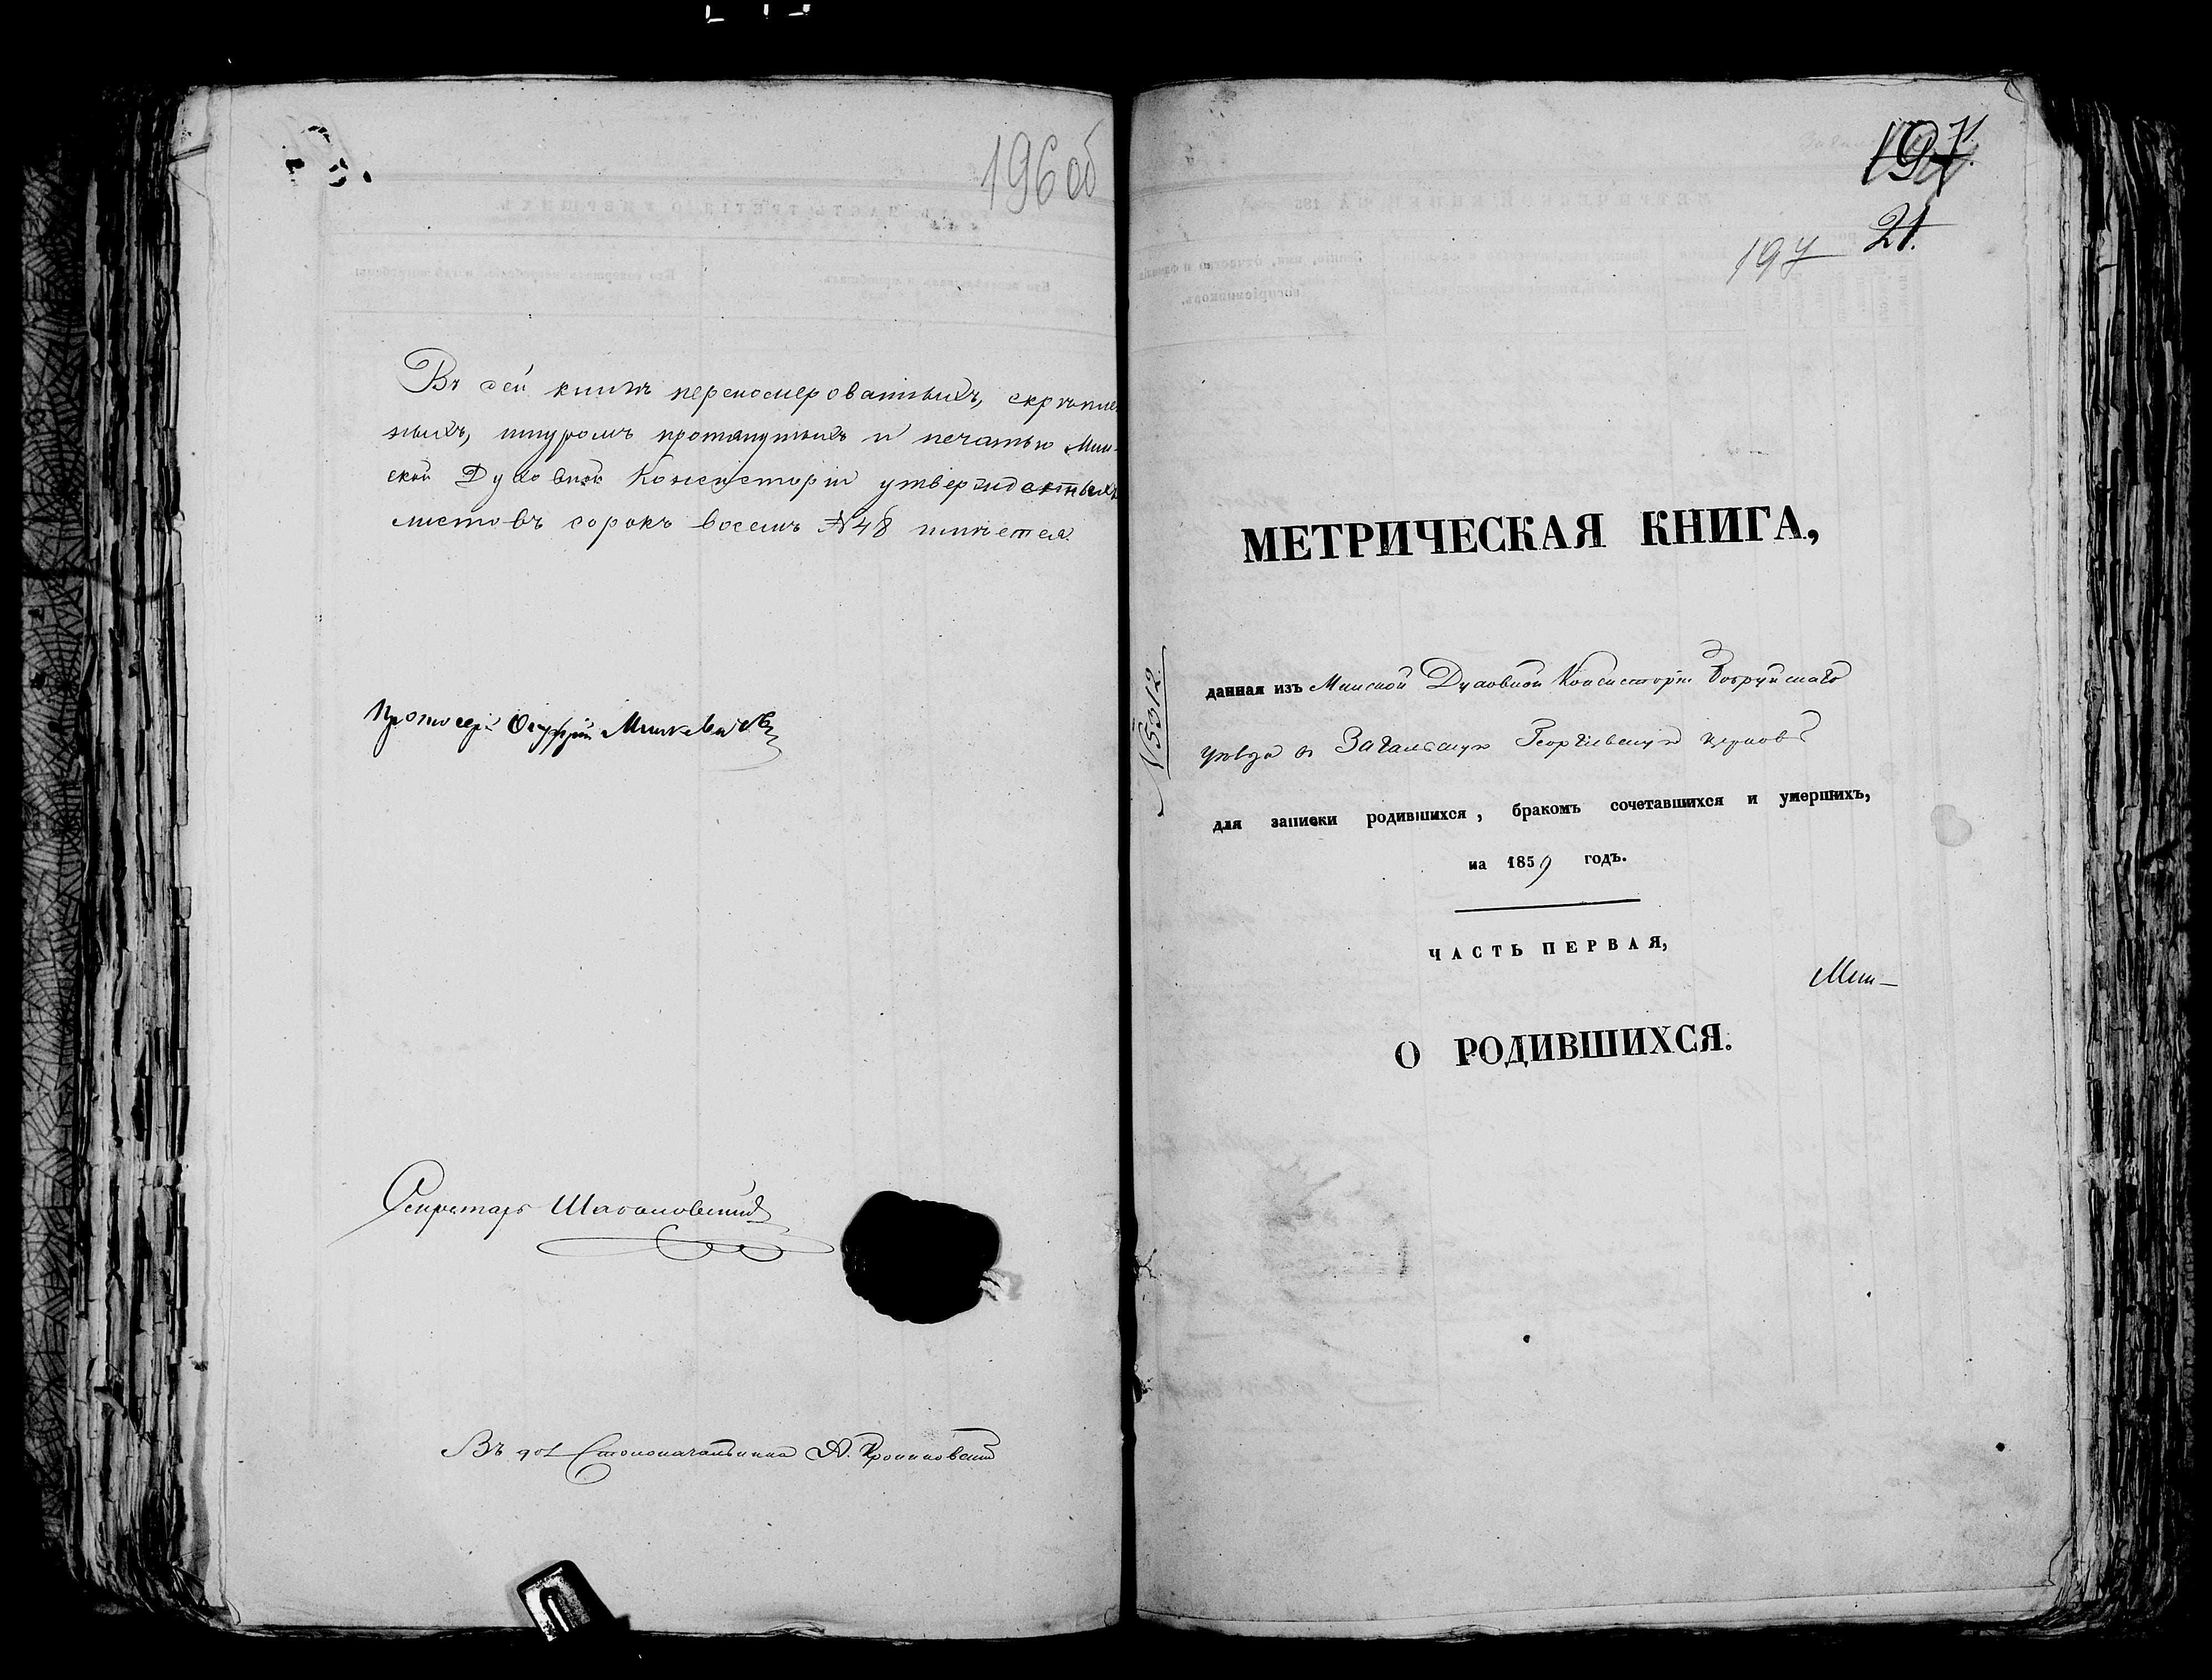 196 об
Въ сей книгѣ переномерованныхъ, скрѣплен
ныхъ, шнуромъ протянутыхъ и печатью Мин-
ской Духовной Консисторіи утвержденныхъ
листовъ сорокъ восемь №48 имѣется.
Протоіерей Минкевичъ
Секретарь
Въ дол. Столоначальника А.
197
21.
197
МЕТРИЧЕСКАЯ КНИГА,
№5312.
данная изъ Минской Духовной Консисторіи Бобруйскаго
уѣзда въ Загальскую Георгіевскую церковь
для записки родившихся, бракомъ сочетавшихся и умершихъ,
на 1859 годъ.
ЧАСТЬ ПЕРВАЯ,
Мин-
О РОДИВШИХСЯ.